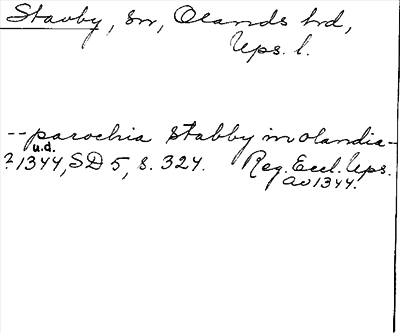 Stavby, sn, Olands hd,
Ups. l.
-- parochia Stabby in olandia --
u.d.
? 1344, SD 5, s. 324. Reg. Eccl. Ups.
av 1344.